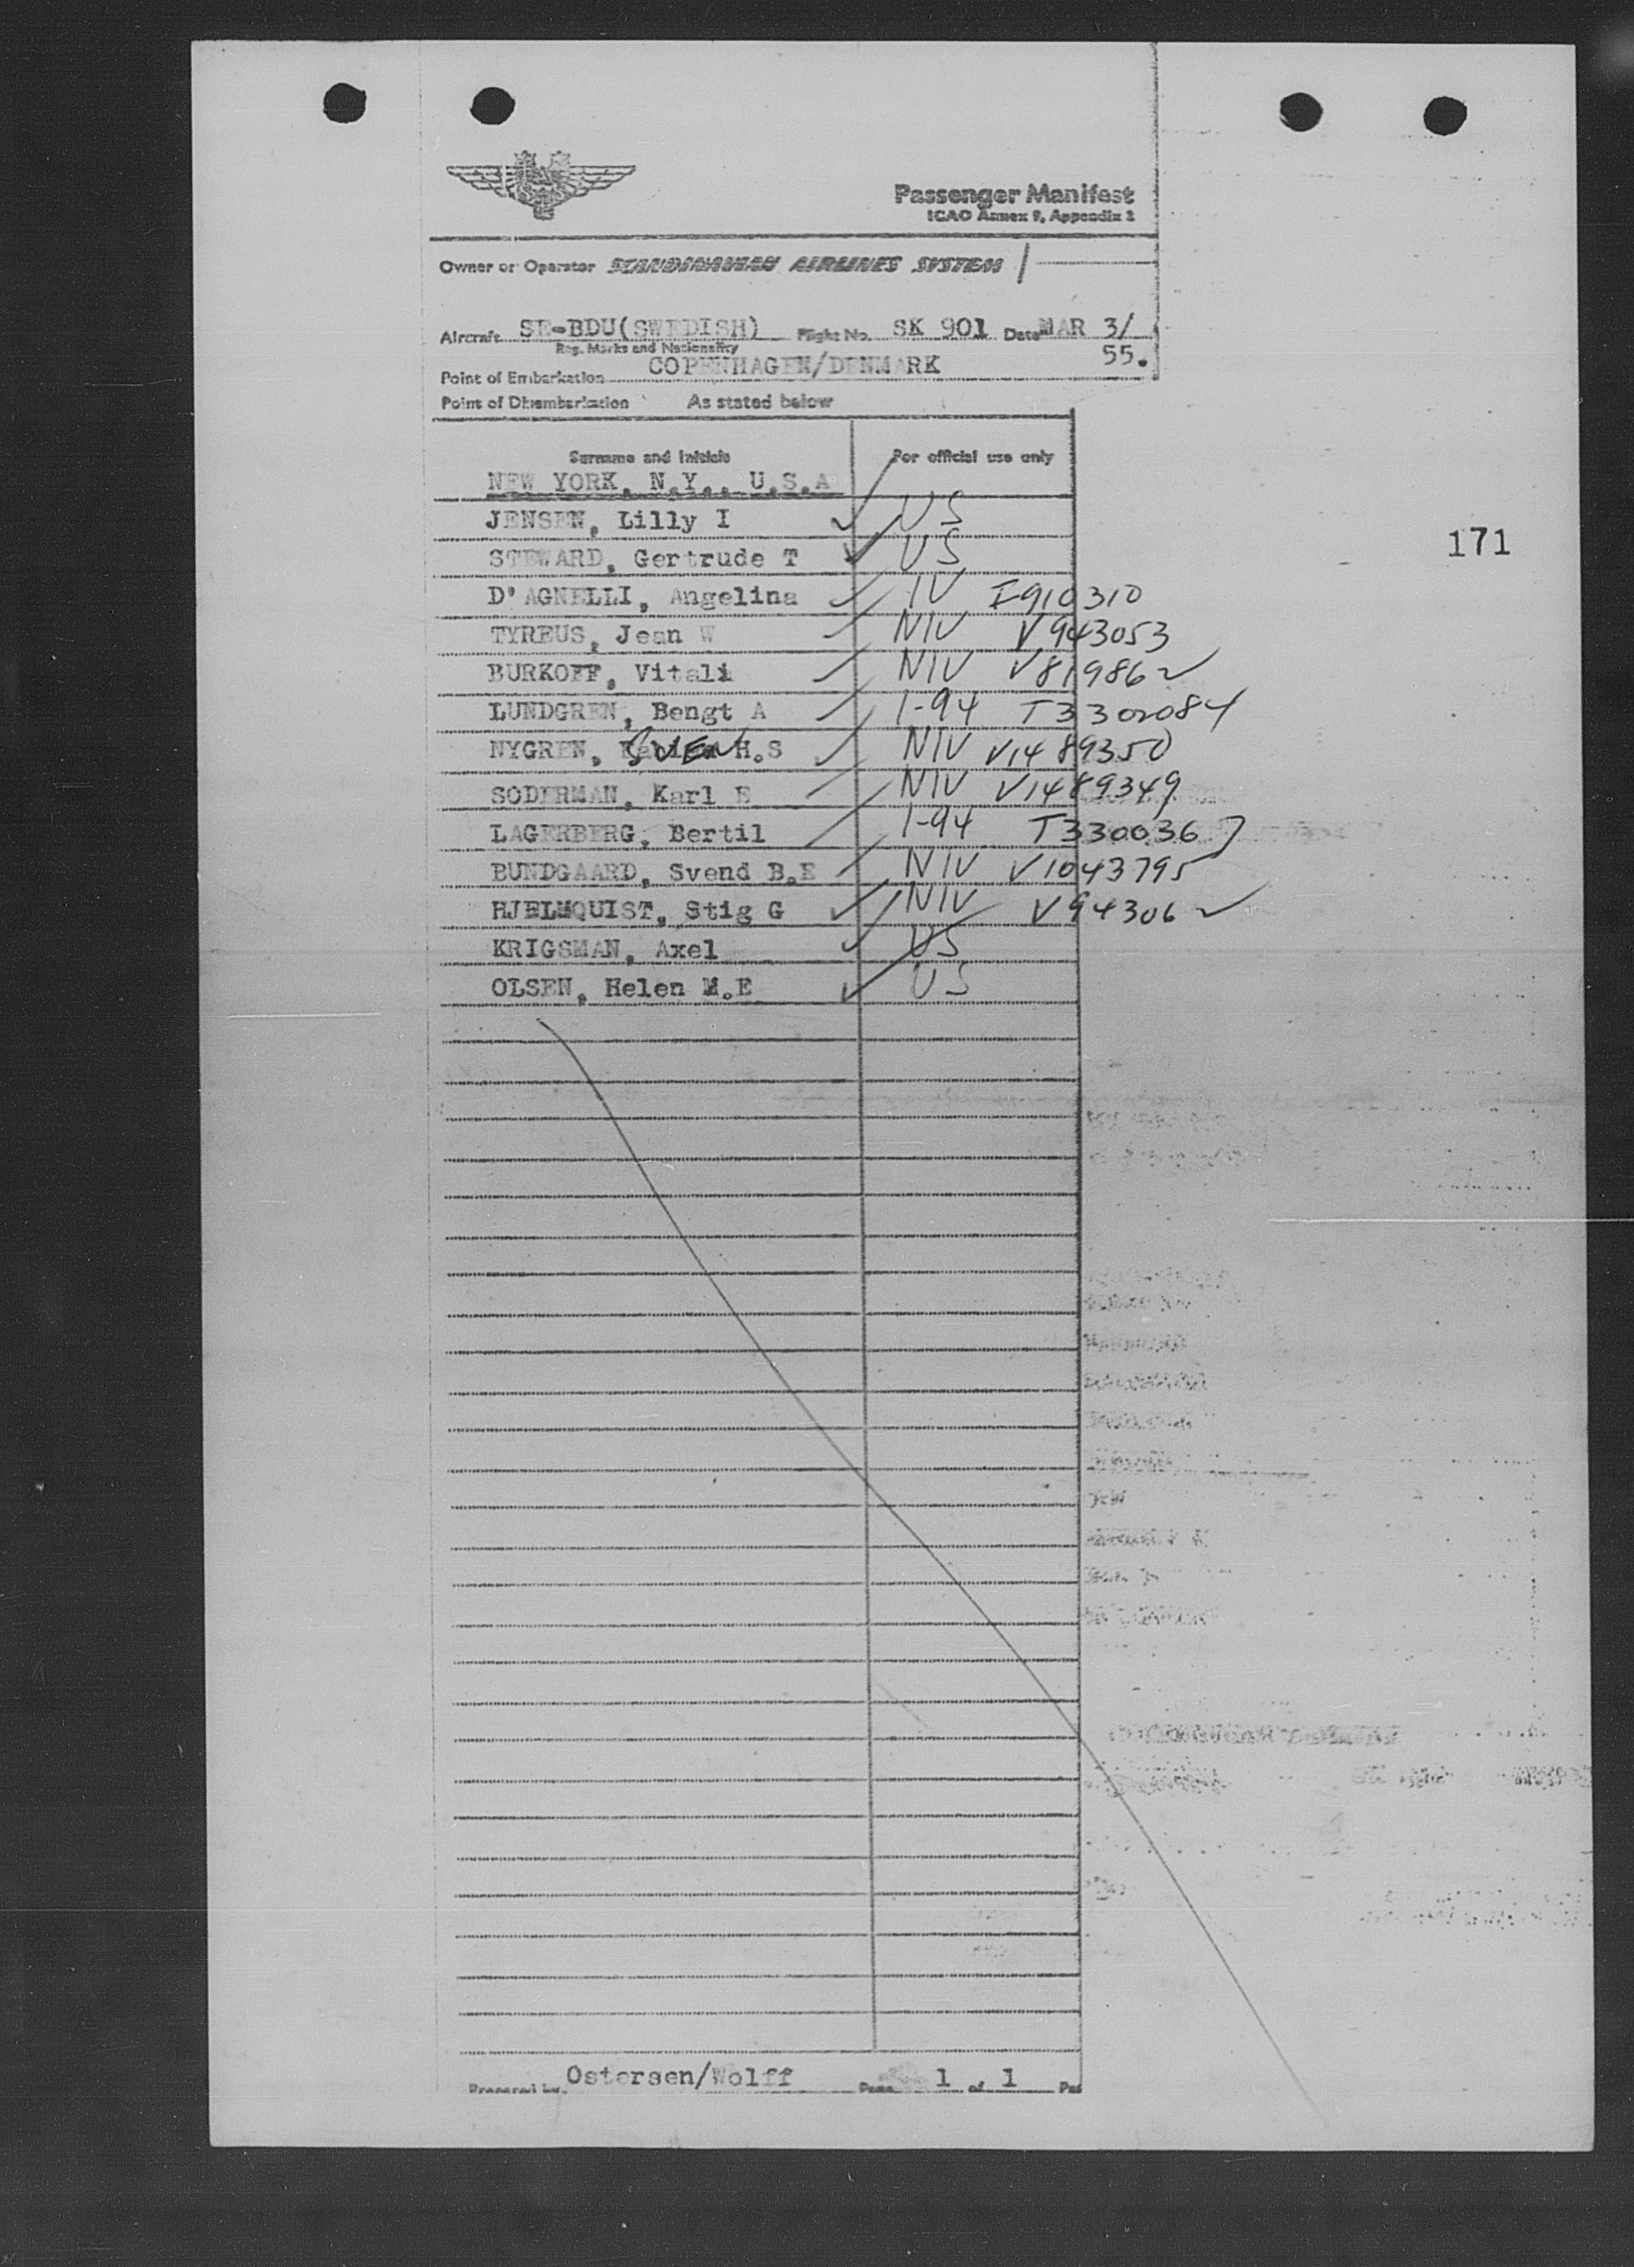 Passenger Manifest
ICAO Annex 9, Appendix 2
Owner or Operator SCANDINAVIAN AIRLINES SYSTEM
Aircraft SE-BDU(SWEDISH) Flight No. SK 901 Date MAR 3/
Reg. Marks and Nationality
55.
Point of Embarkation COPENHAGEN/DENMARK
Point of Disembarkation As stated below
Surname and Initials For official use only
NEW YORK, N.Y., U.S.A
JENSEN, Lilly I US
171
STEWARD, Gertrude T US
D'AGNELLI, Angelina IV I-910310
TYREUS, Jean W NIV V943053
BURKOFF, Vitali NIV V81986
LUNDGREN, Bengt A I-94 T3302084
NYGREN, SVEN H.S NIV V1489350
SODERMAN, Karl E NIV V1489349
LAGERBERG, Bertil I-94 T330036
BUNDGAARD, Svend B.E NIV V1043795
HJELMQUIST, Stig G NIV V94306
KRIGSMAN, Axel US
OLSEN, Helen M.E US
Prepared by Ostersen/Wolff Page 1 of 1